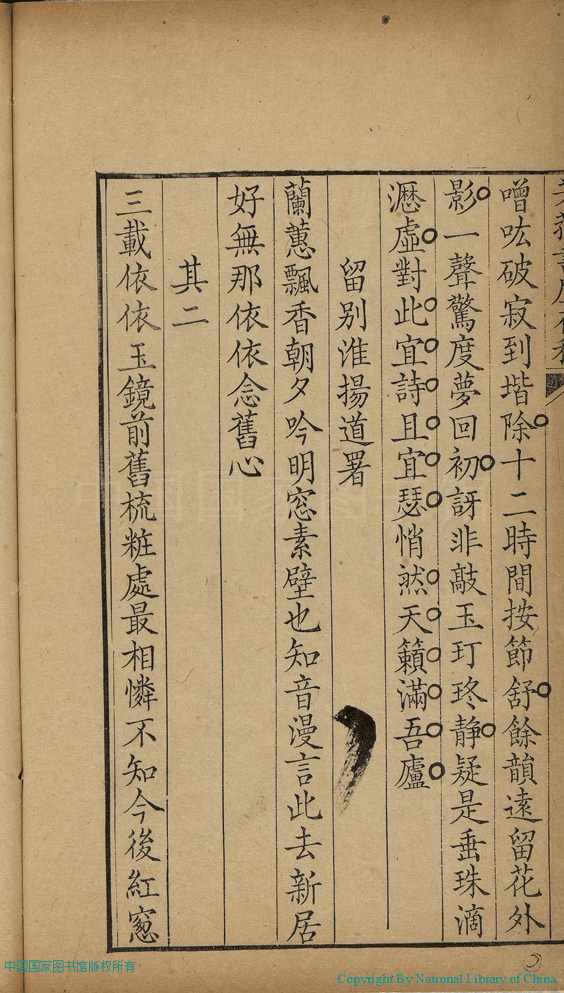 噌吰破寂到堦除十二時間按節舒餘韻遠留花外
影一聲驚度夢回初訝非敲玉玎珓静疑是垂珠滴
瀝虛對此宜詩且宜瑟悄然天籟滿吾廬
留别淮揚道署
蘭蕙飄香朝夕吟明窓素壁也知音漫言此去新居
好無那依依念舊心
其二
三載依依玉鏡前舊梳粧處最相憐不知今後紅窓
中国国家图书馆版权所有
Copyright By National Library of China